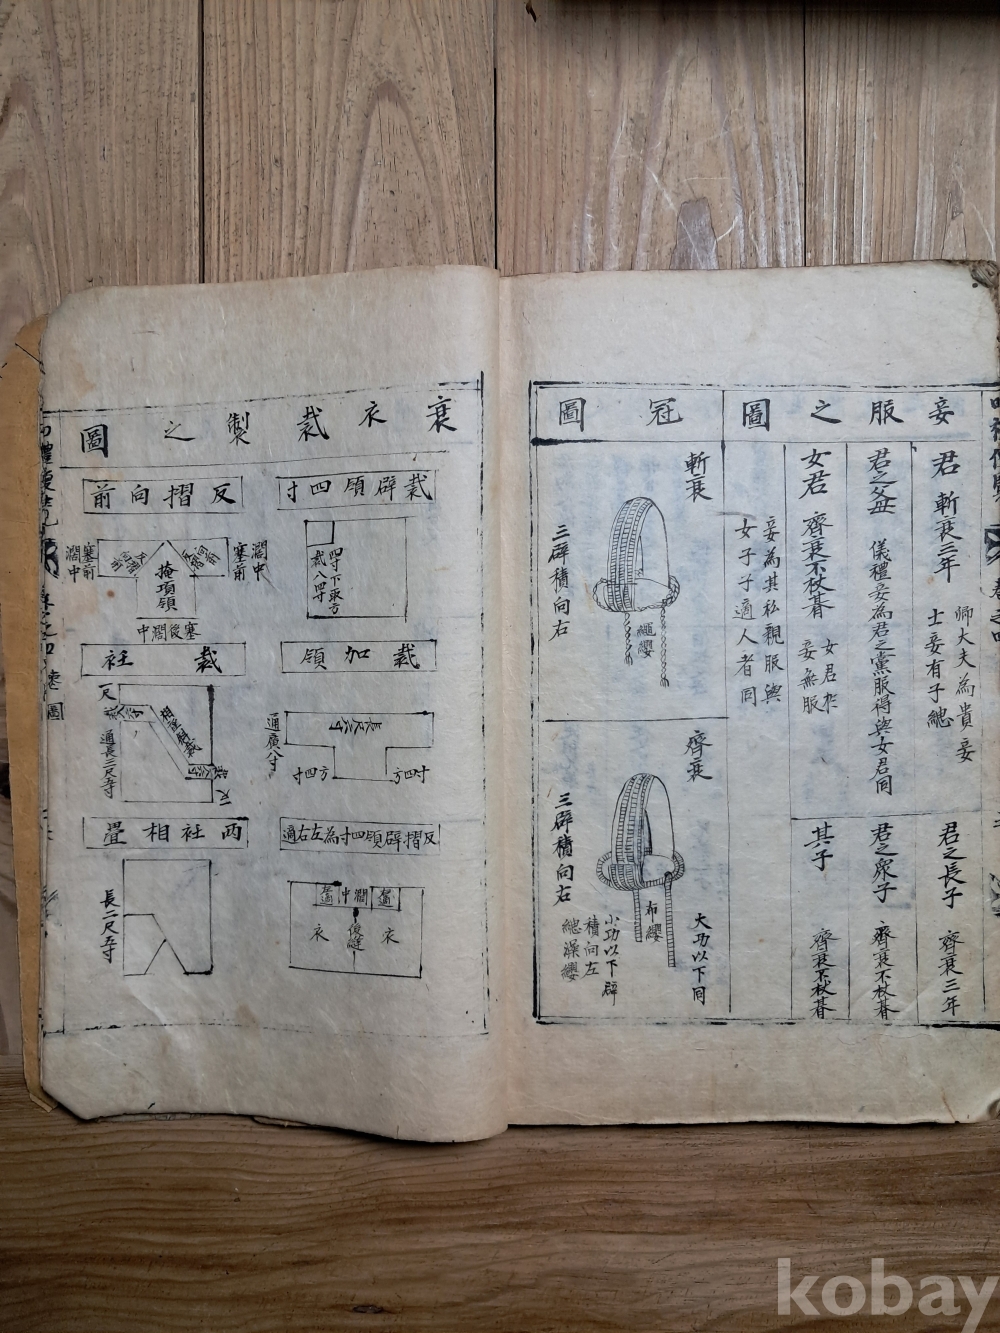 妾服之圖
君 斬衰三年
士妾有子緦
君之長子 齊衰三年
君之父母 儀禮妾為君之黨服得與女君同
君之衆子 齊衰不杖朞
女君 齊衰不杖朞
妾無服
其子 齊衰不杖朞
妾為其私親服與
女子子適人者同
冠圖
斬衰
繩纓
三辟積向右
齊衰
大功以下同
布纓
小功以下辟
積向左
緦澡纓
三辟積向右
衰衣裁製之圖
裁辟領四寸
四寸下取方
裁八四寸
裁加領
長尺六寸
通廣八寸
方四寸
方四寸
反摺辟領四寸為左右適
適
闊中
適
衣
後縫
衣
反摺向前
闊中
塞前
反摺向前
反摺向前
掩項領
塞前
闊中
塞後闊中
裁衽
一尺
六寸
相望斜裁
通長三尺五寸
六寸
一尺
兩衽相疊
長二尺五寸